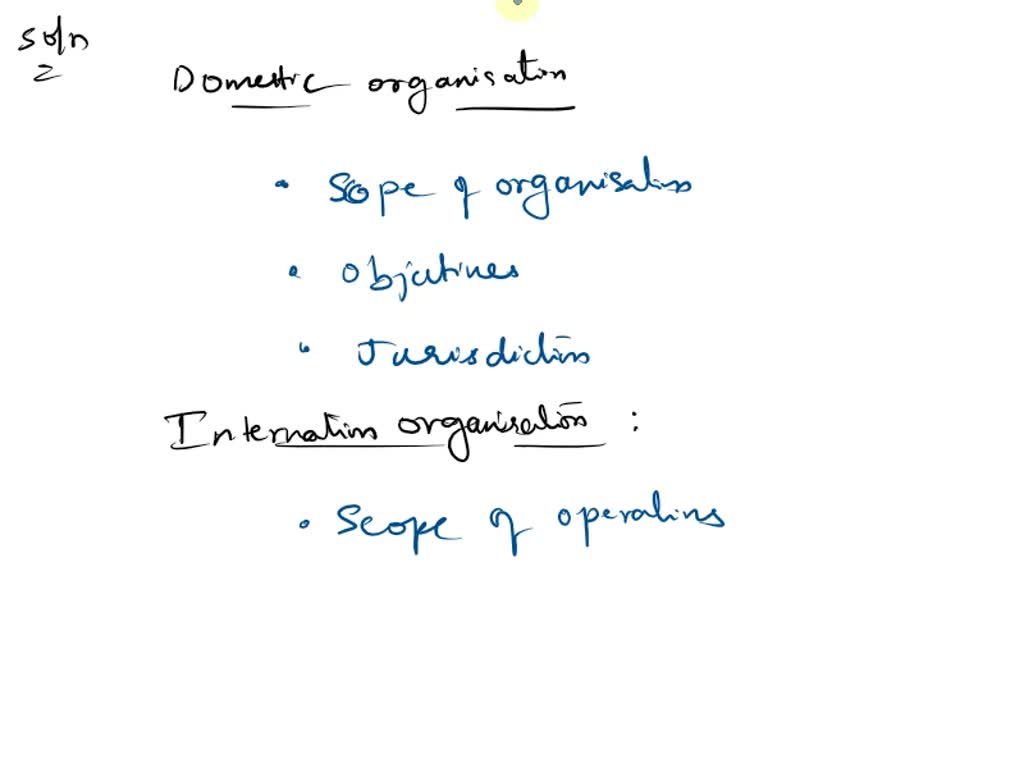 Soln
Domestic organisation
• Scope of organisation
• Objectives
• Jurisdiction
Internation organisation :
• Scope of operations